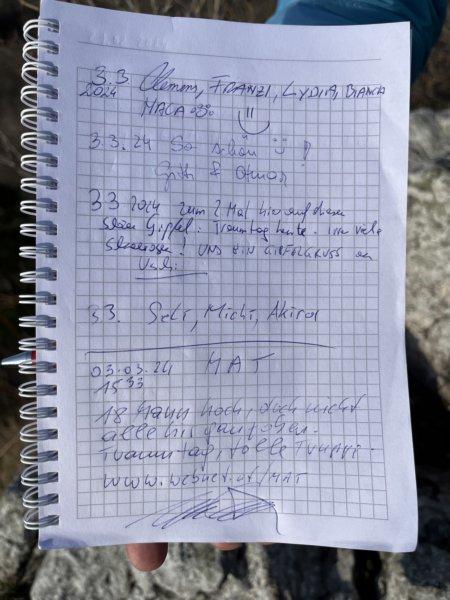 3.3 Clemens, FRANZI, LYDIA, BIANCA
2024 MACA
3.3.24 So schön !
Gitti & Otmar
3.3 2024 zum 2. Mal hier auf diesem
Gipfel. Traumtag heute.
! UND EIN GIPFELGRUSS an
3.3. Michi, Akira
03.03.24 MAT
1533
18 Mann hoch, doch nicht
alle bis ganz oben.
Traumtag, tolle Truppe.
www.webnet.at/MAT